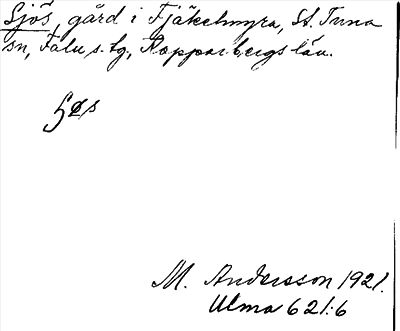 Sjös, gård i Fjäkelmyra, St. Tuna
sn, Falu s. tg, Kopparbergs län.
M. Andersson 1921.
Ulma 621:6